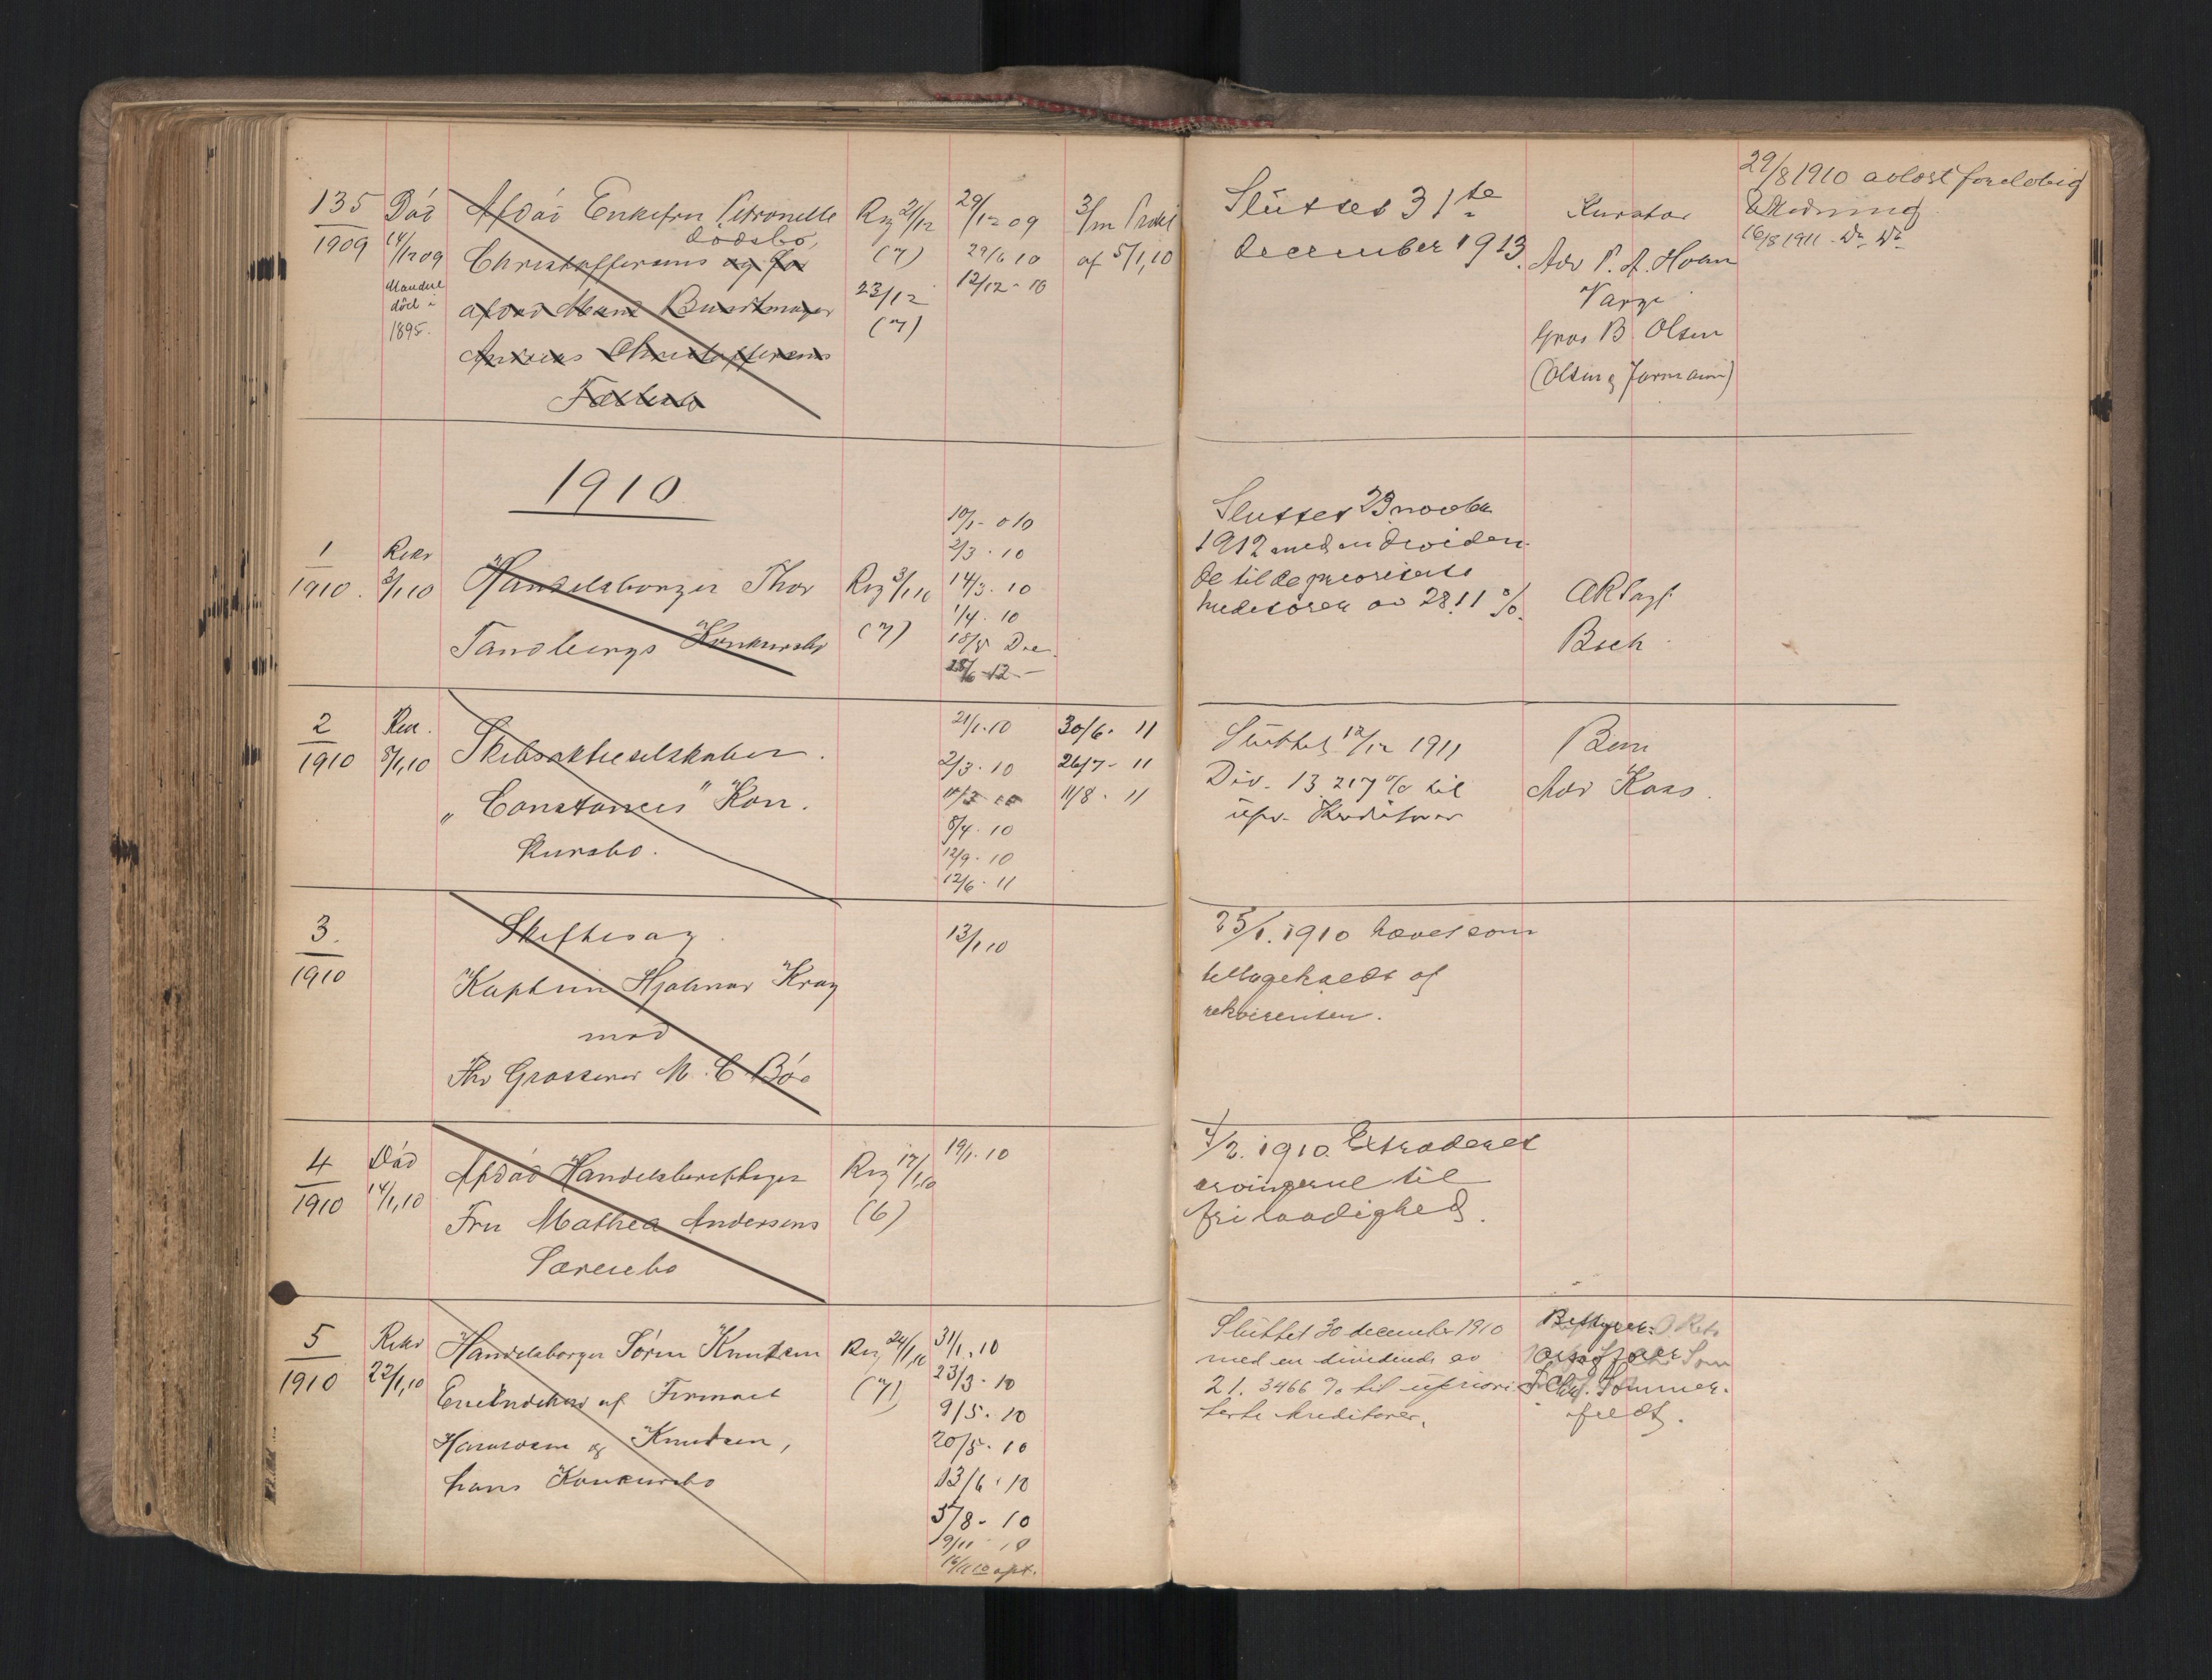 135
1909
Død
14/12 09
Manden
død i
1895.
Afdød Enkefru Petronelle
dødsbo,
Christoffersens og for
afdød Mand Buntmager
Andreas Christoffersens
Fællesbo
Reg 21/12
(7)
23/12
(7)
29/12 09
29/6 10
12/12 - 10
3/m Prokl
af 5/1,10
Sluttet 31te
december 1913.
Kurator
Adv P. A. Holm
Varge
Gros B. Olsen
(Olsen & Jarmann)
29/8 1910 avlöst foreløbig
16/8 1911 - Do Do
1910
1
1910.
Rekv
3/1,10
Handelsborger Thor
Tandbergs Konkursbo
Reg 3/1,10
(7)
10/1 - 010
2/3 - 10
14/3 - 10
1/4 - 10
Sluttet 23 novbr
1912 med en dividen-
de til de prioriterte
kreditorer av 28.11 %.
2
1910
Rek.
8/1,10
Skibsaktieselskabet
"Constances" Kon-
kursbo.
21/1 - 10
2/3 - 10
8/4 - 10
12/9 - 10
12/6 - 11
30/6 - 11
26/7 - 11
11/8 - 11
Sluttet 12/12 1911
Div. 13.217 % til
upr. Kreditorer
Adv Kaas.
3.
1910
Skiftesag
Kaptein Hjalmar Krag
mod
Hr Grosserer M. C. Bøe
13/1,10
25/1.1910 hævet som
tilbagekaldt af
rekvirenten.
4
1910
Død
14/1,10
Afdød Handelsberettiget
Fru Mathea Andersens
Særeiebo
Reg 17/1,10
(6)
19/1 - 10
4/2. 1910. Extraderet
arvingerne til
fri raadighed.
5
1910
Rekv
22/1,10
Handelsborger Sören Knutsen
Eneindehav af Firmaet
og Knutsen,
hans Konkursbo
Reg 24/1,10
(7)
31/1,10
23/3 - 10
9/5 - 10
20/5 - 10
13/6 - 10
5/8 - 10
9/11 10
Sluttet 30 december 1910
med en dividende av
21.3466 % til upriori-
terte kreditorer.
Bestyrer:
Chr. Sommer-
feldt.